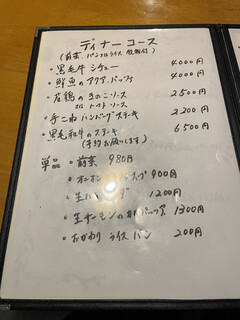 ディナーコース
(前菜 パンorライス 飲物付)
・黒毛牛シチュー 4000円
・鮮魚のアクアパッツァ 4000円
・若鶏のきのこソース 2500円
or トマトソース
・手こねハンバーグステーキ 2200円
・黒毛和牛のステーキ 6500円
(予約お願いします)
単品・前菜 980円
・オニオングラタンスープ 900円
・生ハム 1200円
・生サーモンのカルパッチョ 1300円
・おかわり ライス パン 200円